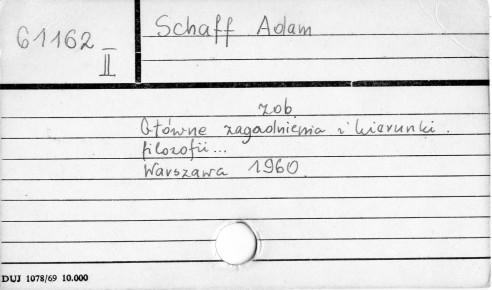 61162
II
Schaff Adam
zob
Główne zagadnienia i kierunki.
filozofii...
Warszawa 1960
DUJ 1078/69 10.000